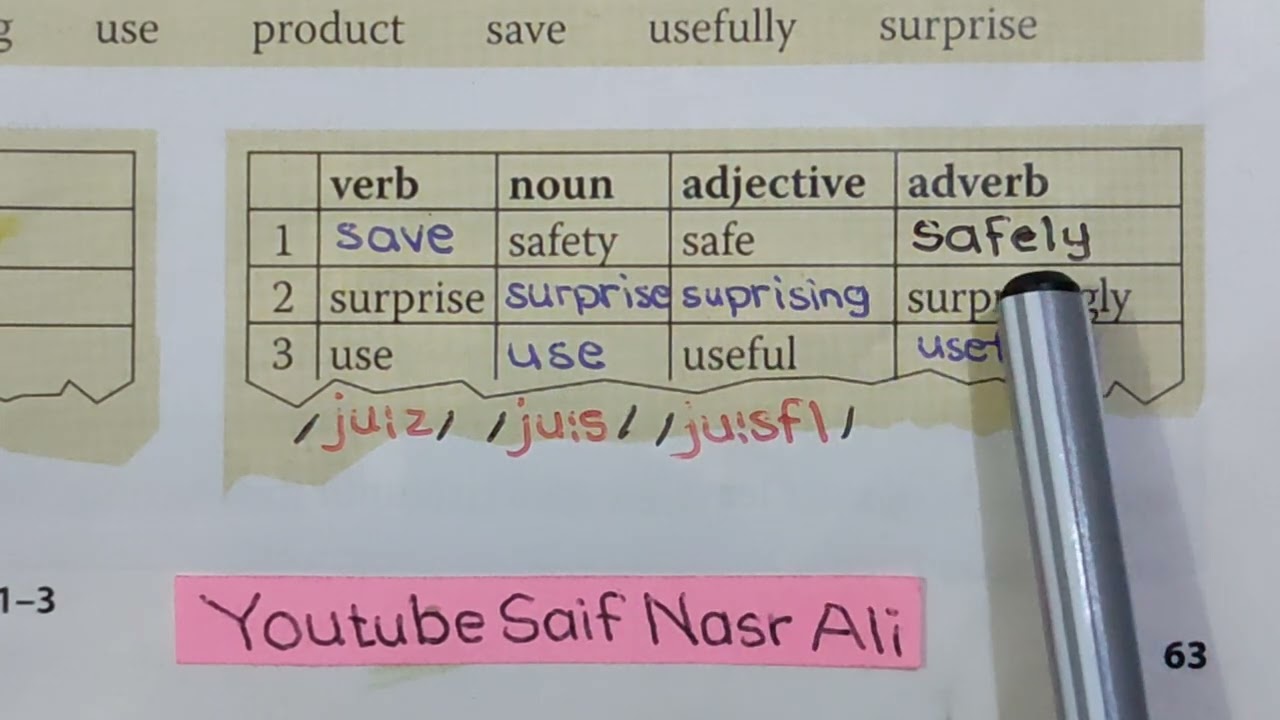 use product save usefully surprise
verb noun adjective adverb
1 save safety safe safely
2 surprise surprise suprising
3 use use useful
/ju:z/ /ju:s/ /ju:sfl/
1–3
Youtube Saif Nasr Ali
63